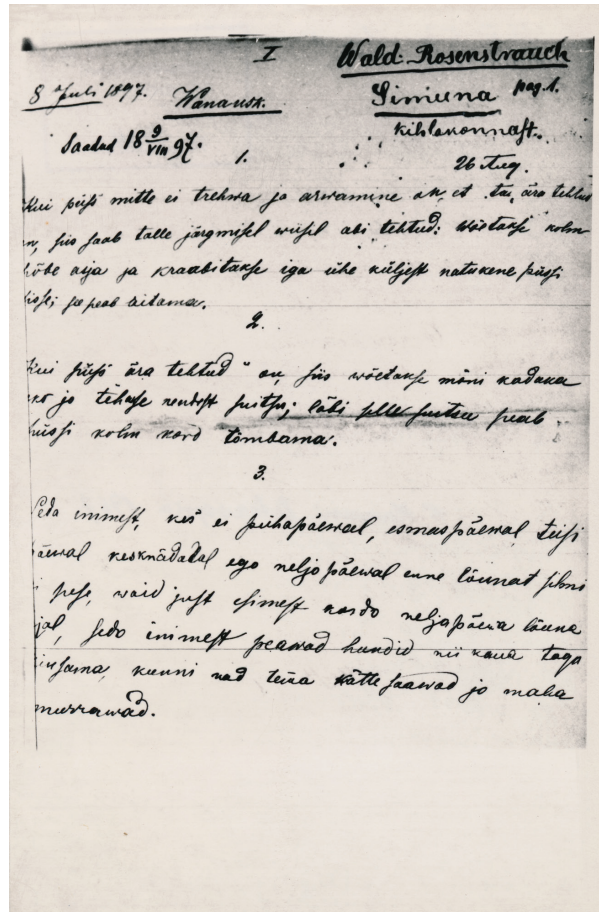 I
Wald. Rosenstrauch
8 Juli 1897. Wanausk. Simuna pag. 1.
Saadud 18 9/VIII 97. kihlakonnast.
1. 26 Aug.
Kui püss mitte ei trehwa ja arwamine on, et ta „ära tehtud
on, siis saab talle järgmisel wiisel abi tehtud: wõetakse kolm
hõbe asja ja kraabitakse iga ühe küljest natukene püssi
sisse; se peab aitama.
2.
Kui püss ära tehtud" on, siis wõetakse mõni kadaka
oks ja tehakse nendest suitsu; läbi selle suitsu peab
püssi kolm kord tõmbama.
3.
Seda inimest, kes ei pühapäewal, esmaspäewal, teisi
päewal kesknädalal ega neljapäewal enne lõunat silmi
ei pese, waid just esimest korda neljapäewa lõuna
ajal, seda inimest peawad hundid nii kaua taga
kiusama, kunni nad tema kätte saawad ja maha
murrawad.